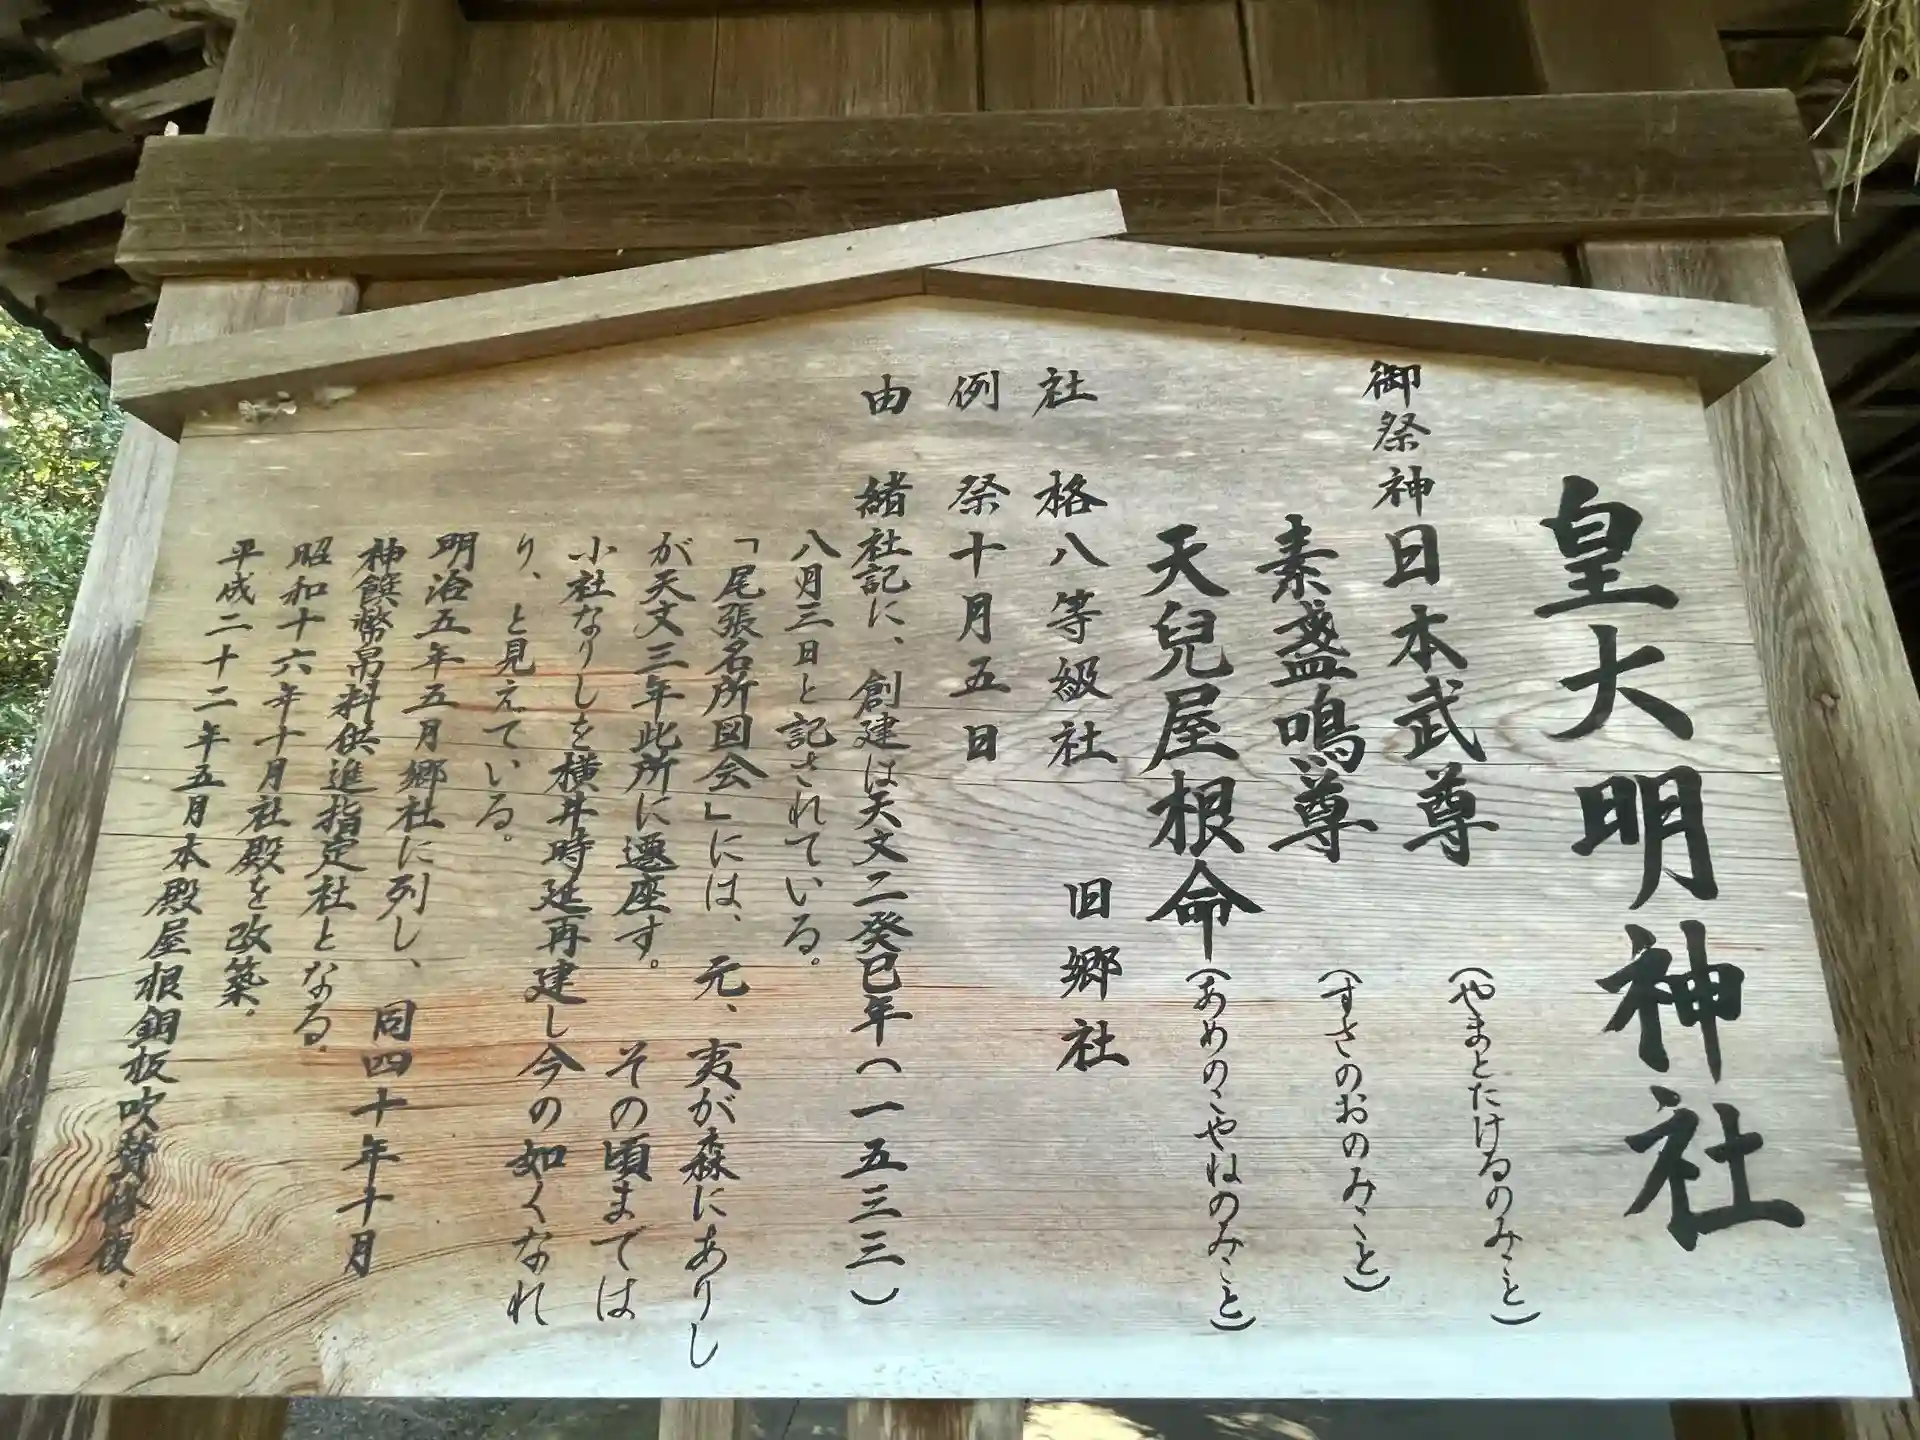 皇大明神社
御祭神 日本武尊 (やまとたけるのみこと)
素盞鳴尊 (すさのおのみこと)
天兒屋根命 (あめのこやねのみこと)
社格 八等級社 旧郷社
例祭 十月五日
由緒 社記に、創建は天文二癸巳年(一五三三)
八月三日と記されている。
「尾張名所図会」には、元、夷が森にありし
が天文三年此所に遷座す。その頃までは
小社なりしを横井時延再建し今の如くなれ
り、と見えている。
明治五年五月郷社に列し、同四十年十月
神饌幣帛料供進指定社となる。
昭和十六年十月社殿を改築。
平成二十二年五月本殿屋根銅板吹替修復。